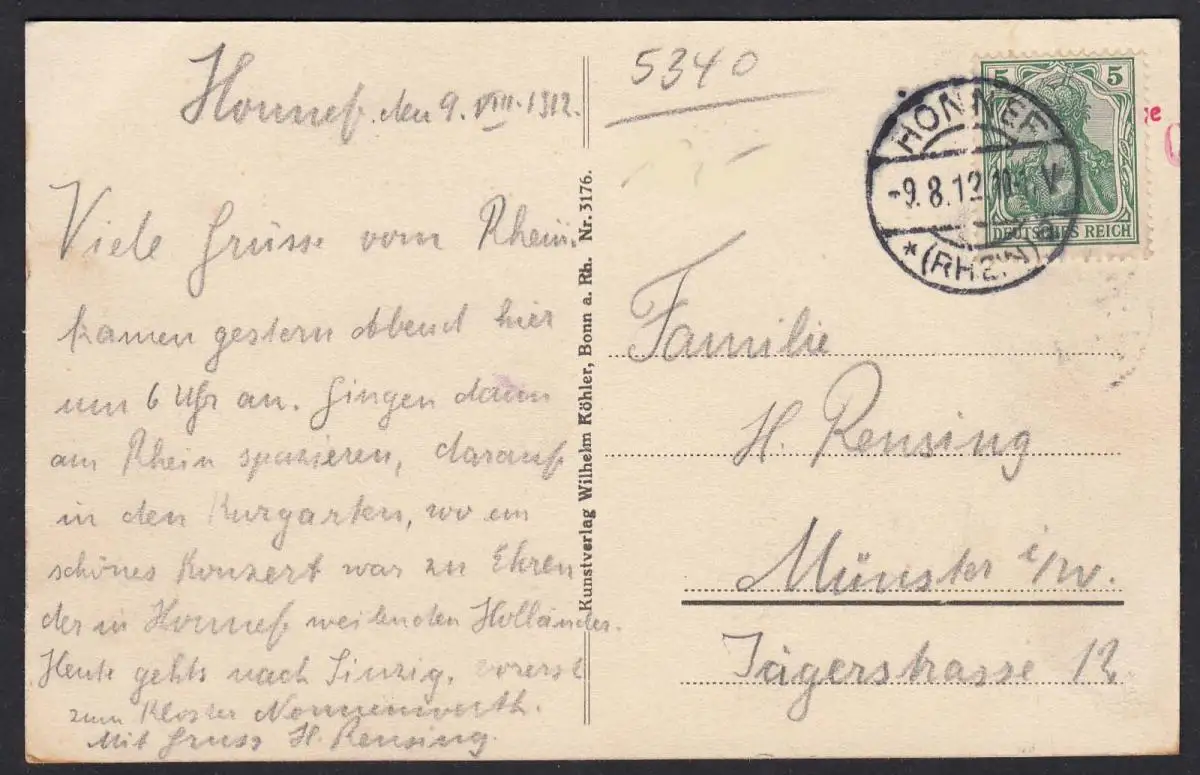 Honnef. den 9. VIII. 1912.
Viele Grüsse vom Rhein.
kamen gestern Abend hier
um 6 Uhr an. Gingen dann
am Rhein spazieren, darauf
in den Kurgarten, wo ein
schönes Konzert war zu Ehren
der in Honnef weilenden Holländer.
Heute gehts nach Sinzig, vorerst
zum Kloster Nonnenwerth.
Mit Gruss H. Rensing.
Kunstverlag Wilhelm Köhler, Bonn a. Rh. Nr. 3176.
5340
5 5
DEUTSCHES REICH
HONNEF
-9.8.12
* (RHEIN)
Familie
H. Rensing
Münster i/W.
Jägerstrasse 12.